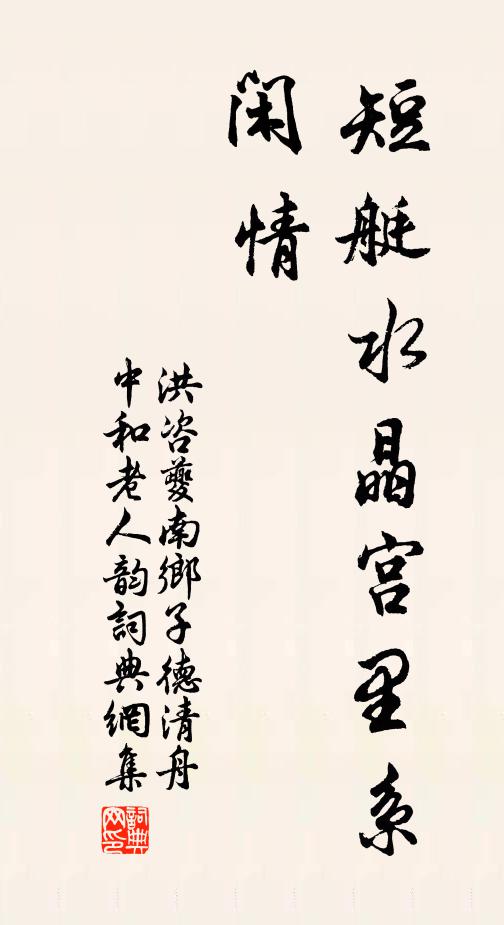 短艇水晶宫里系
闲情
洪咨夔南鄉子德清舟
中和老人韵詞典網集
詞典
网印